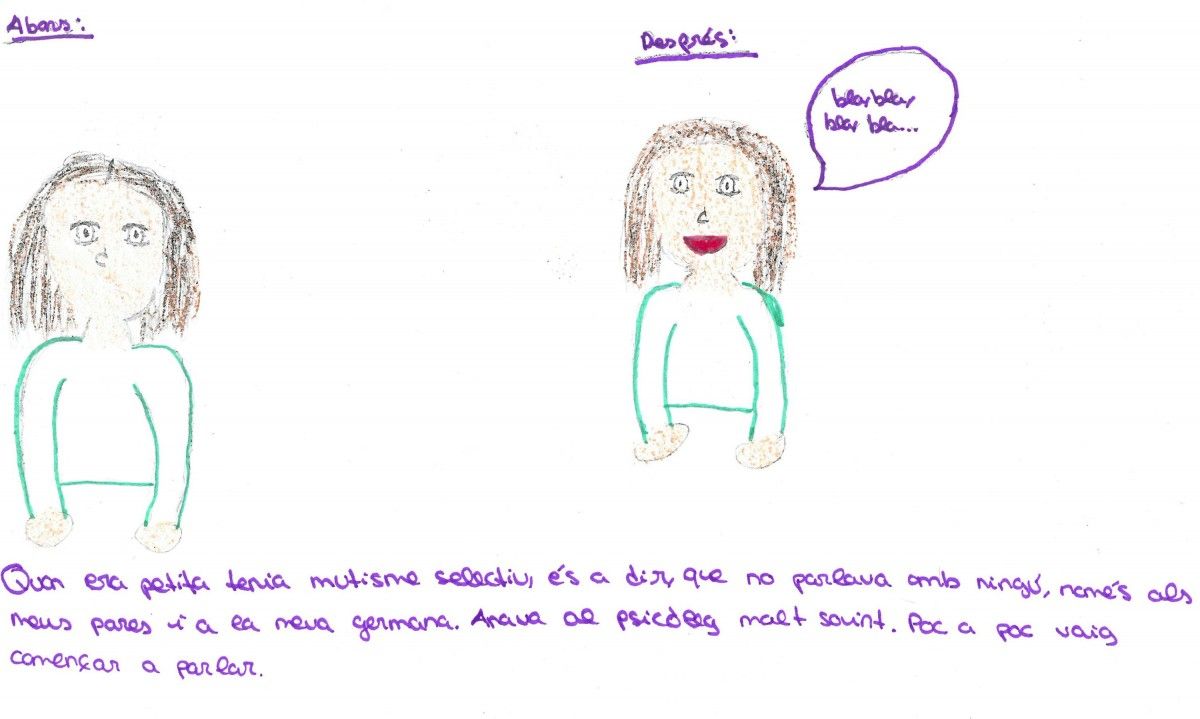 Abans:
Després:
bla, bla,
bla, bla...
Quan era petita tenia mutisme selectiu, és a dir, que no parlava amb ningú, només als
meus pares i a la meva germana. Anava al psicòleg molt sovint. Poc a poc vaig
començar a parlar.